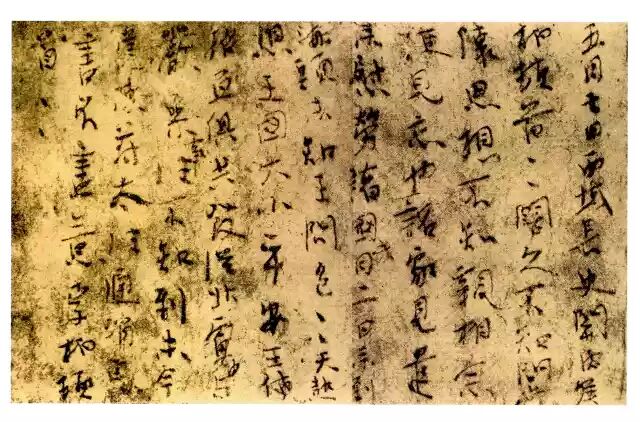 五月七日西域長史關內侯
柏頓首〻〻闊久不知問
懷思想不知親相念
便見忘也詔家見遣
來慰勞諸國月二日來到
海頭未知王問邑〻天熱
想王國大小平安王使
俱共發從北虜
嚴參事往不知到未今
遣使苻太往通消息
書不盡意李柏頓
首〻〻